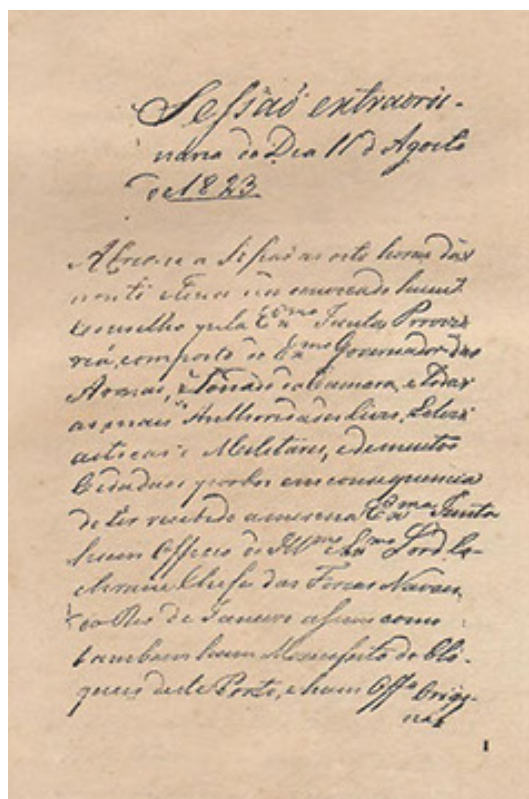 Sessaõ extraordi-
naria do Dia 11 d'Agosto
de 1823
Abrio-se a Sessaõ as oito horas da
noite
Conselho pela Exma Junta Provizo
ria, composto do Exmo Governador das
Armas, Senado da Camara, e todas
as mais Authoridades Civis, Eclezi
asticas e Militares, e de muitos
Cidadaos em consequencia
de ter recebido a mesma Exma Junta
hum Officio do Illmo Exmo Lord Co-
chrane Chefe das Forcas Navaes
do Rio de Janeiro assim como
tambem hum Manifesto do Blo-
queio deste Porto, e hum Offo Origi-
nal
1